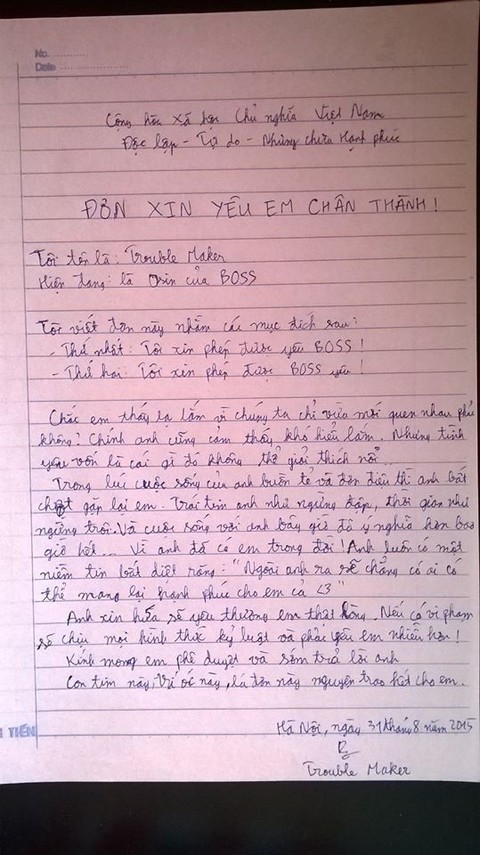 No. ............
Date ......................
Cộng hòa xã hội Chủ nghĩa Việt Nam
Độc lập - Tự do - Nhưng chưa Hạnh phúc
ĐƠN XIN YÊU EM CHÂN THÀNH!
Tôi tên là: Trouble Maker
Hiện đang: là Osin của BOSS
Tôi viết đơn này nhằm các mục đích sau:
- Thứ nhất: Tôi xin phép được yêu BOSS!
- Thứ hai: Tôi xin phép được BOSS yêu!
Chắc em thấy lạ lắm vì chúng ta chỉ vừa mới quen nhau phải
không? Chính anh cũng cảm thấy khó hiểu lắm. Nhưng tình
yêu vốn là cái gì đó không thể giải thích nổi...
Trong lúc cuộc sống của anh buồn tẻ và đơn điệu thì anh bất
chợt gặp lại em. Trái tim anh như ngừng đập, thời gian như
ngừng trôi. Và cuộc sống với anh bây giờ đã ý nghĩa hơn bao
giờ hết... Vì anh đã có em trong đời! Anh luôn có một
niềm tin bất diệt rằng: "Ngoài anh ra sẽ chẳng có ai có
thể mang lại hạnh phúc cho em cả <3"
Anh xin hứa sẽ yêu thương em thật lòng. Nếu có vi phạm
sẽ chịu mọi hình thức kỷ luật và phải yêu em nhiều hơn!
Kính mong em phê duyệt và sớm trả lời anh
Con tim này, trí óc này, lá đơn này nguyện trao hết cho em.
TIẾN
Hà Nội, ngày 31 tháng 8 năm 2015
Trouble Maker